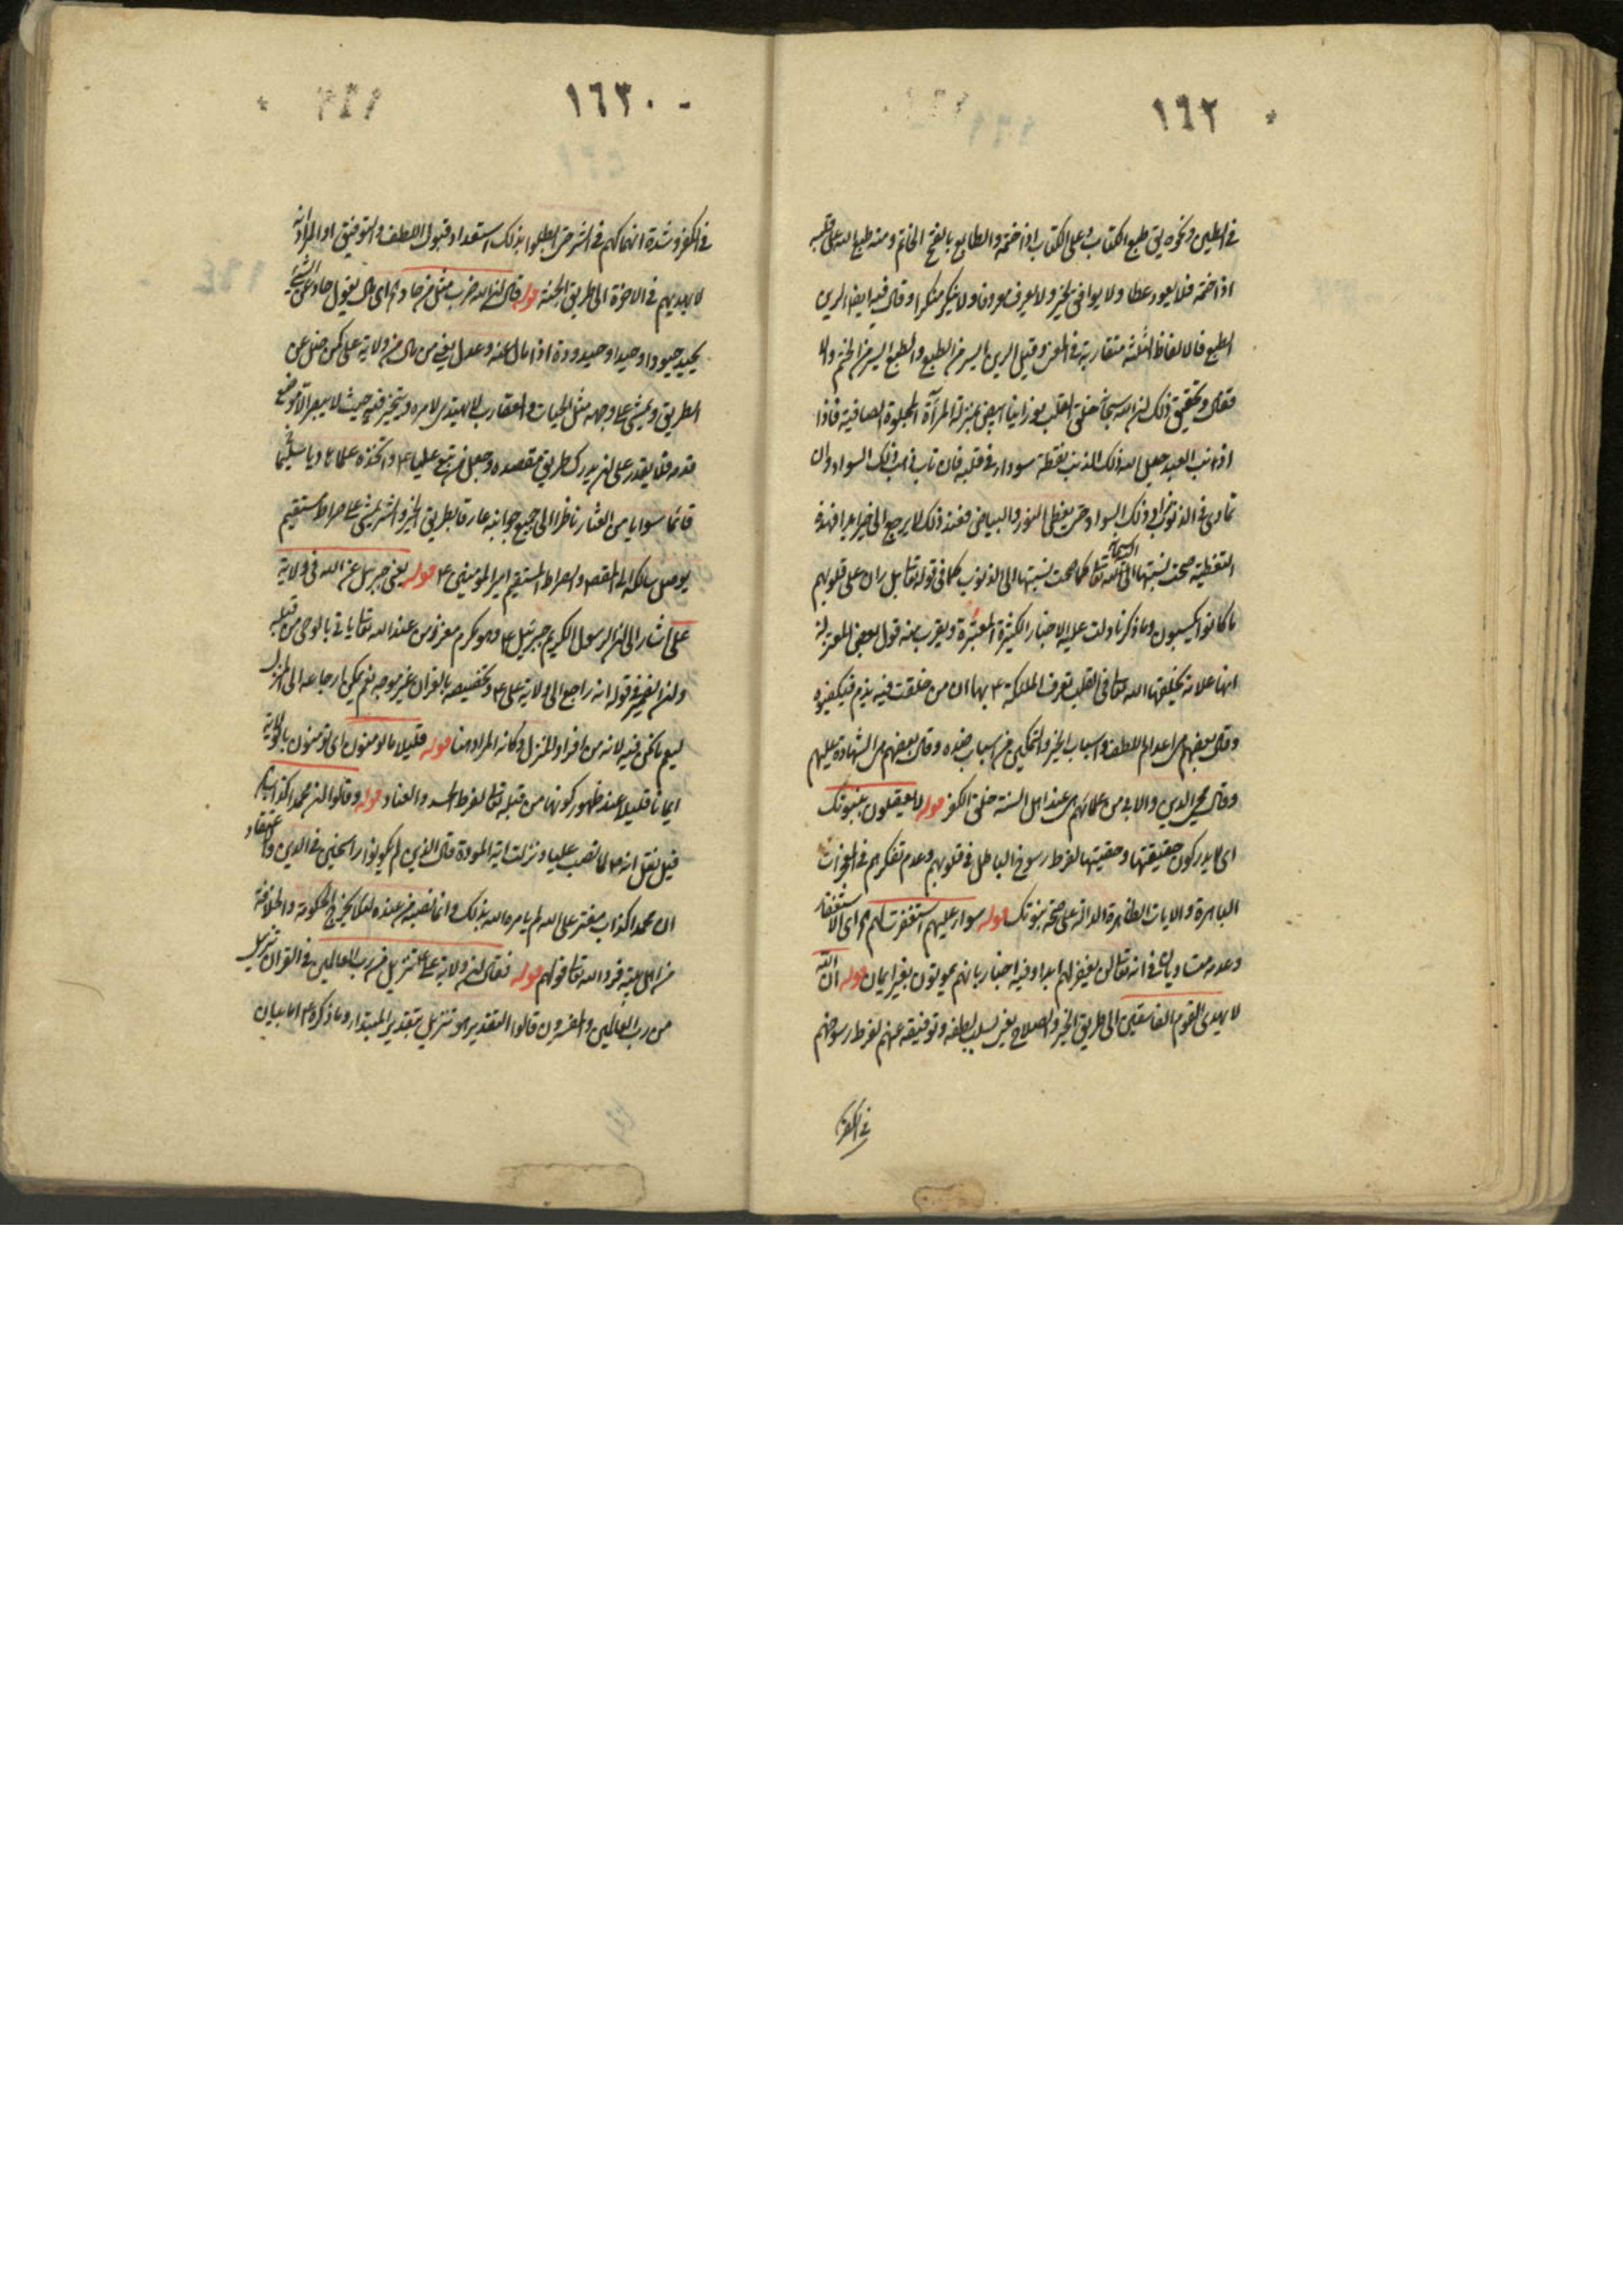 ١٦٢
في الطين ونحوه يق طبع الكتاب وعلى الكتاب اذا ختمه والطابع بالفتح الخاتم ومنه طبع الله على قلبه
اذا ختمه فلا يعود عطا ولا يوافق لخير ولا يعرف معروفا ولا ينكر منكرا وقال فيه ايضا الرين
الطبع فالالفاظ الثلثة متقاربة في المعنى وقيل الرين ايسر من الطبع والطبع ايسر من الختم
فقال وتحقيق ذلك ان الله سبحانه خلق القلب نورانيا ابيض بمنزلة المرآة المجلوة الصافية فاذا
اذنب العبد جعل الله ذلك الذنب نقطة سوداء في قلبه فان تاب ذهب ذلك السواد وان
تمادى في الذنوب زاد ذلك السواد حتى يغطى النور والبياض فعند ذلك لا يرجع الى خير ابدا فهذه
التغطية صحت نسبتها الى الله تعالى كما صحت نسبتها الى الذنوب كما في قوله تعالى بل ران على قلوبهم
ما كانوا يكسبون وما ذكرنا دلت عليه الاخبار الكثيرة المعتبرة ويقرب منه قول بعض المعتزلة
انها علامة يخلقها الله تعالى في القلب تعرف الملئكة ع بها ان من خلقت فيه يذم
وقال بعضهم هي اعدام اللطف واسباب الخير والتمكين من اسباب ضده وقال بعضهم هي الشهادة عليهم
وقال محي الدين والابي من علمائهم هي عند اهل السنة خلق الكفر قوله لا يعقلون بنبوتك
اى لا يدركون حقيقتها وحقيتها لفرط رسوخ الباطل في قلوبهم وعدم تفكرهم في المعجزات
الباهرة والايات الظاهرة الدالة على صحة نبوتك قوله سواء عليهم استغفرت لهم اى الاستغفار
وعدمه متساويان في انه تعالى لن يغفر لهم ابدا وفيه اخبار بانهم يموتون بغير ايمان قوله ان الله
لا يهدى القوم الفاسقين الى طريق الخير والصلاح بغير سلب لطفه وتوفيقه عنهم لفرط رسوخهم
في الكفر
١٦٣
في الكفر وشدة انهماكهم في الشر حتى ابطلوا بذلك استعداد قبول اللطف والتوفيق او المراد انه
لا يهديهم في الاخرة الى طريق الجنة قوله قال ان الله ضرب مثل من حاد اه اى مال يقول حاد عن الشئ
يحيد حيودا وحيدا وحيدودة اذا مال عنه وعدل يعني من مال من ولاية على كمن ضل عن
الطريق ويمشى على وجهه مثل الحيات والعقارب لا يهتدى لامره ويتحير فيه حيث لا يبصر الا موضع
قدمه فلا يقدر على ان يدرك طريق مقصده وجعل من تبع عليا ع واتخذه علما هاديا سليما
قائما سويا من العثار ناظرا الى جميع جوانبه عارفا بطريق الخير والشر يمشى على صراط مستقيم
يوصل سالكه الى المقصد والصراط المستقيم امير المؤمنين ع قوله يعنى جبرئيل عن الله في ولاية
على اشار الى ان الرسول الكريم جبرئيل ع وهو مكرم معزز من عند الله تعالى ياتي بالوحى من قبله
وان الضمير في قوله انه راجع الى ولاية على ع وتخصيصه بالقران غير موجه نعم يمكن ارجاعه الى المنزل
ليعم ما نحن فيه لانه من افراد المنزل وكانه المراد هنا قوله قليلا ما تؤمنون اى تؤمنون بالولاية
ايمانا قليلا عند ظهور كونها من قبله تعالى لفرط الحسد والعناد قوله وقالوا ان محمدا كذاب
قيل نقل انه ص لما نصب عليا ونزلت اية المودة قال الذين لم يكونوا راسخين في الدين والاعتقاد
ان محمدا كذاب مفتر على الله لم يامره الله بذلك وانما نصبه من عنده لئلا يخرج الحكومة والخلافة
من اهل بيته فرد الله تعالى قولهم قوله فقال ان ولاية على تنزيل من رب العالمين في القران تنزيل
من رب العالمين والمفسرون قالوا التقدير هو تنزيل بتقدير المبتداء وما ذكره ع اما بيان